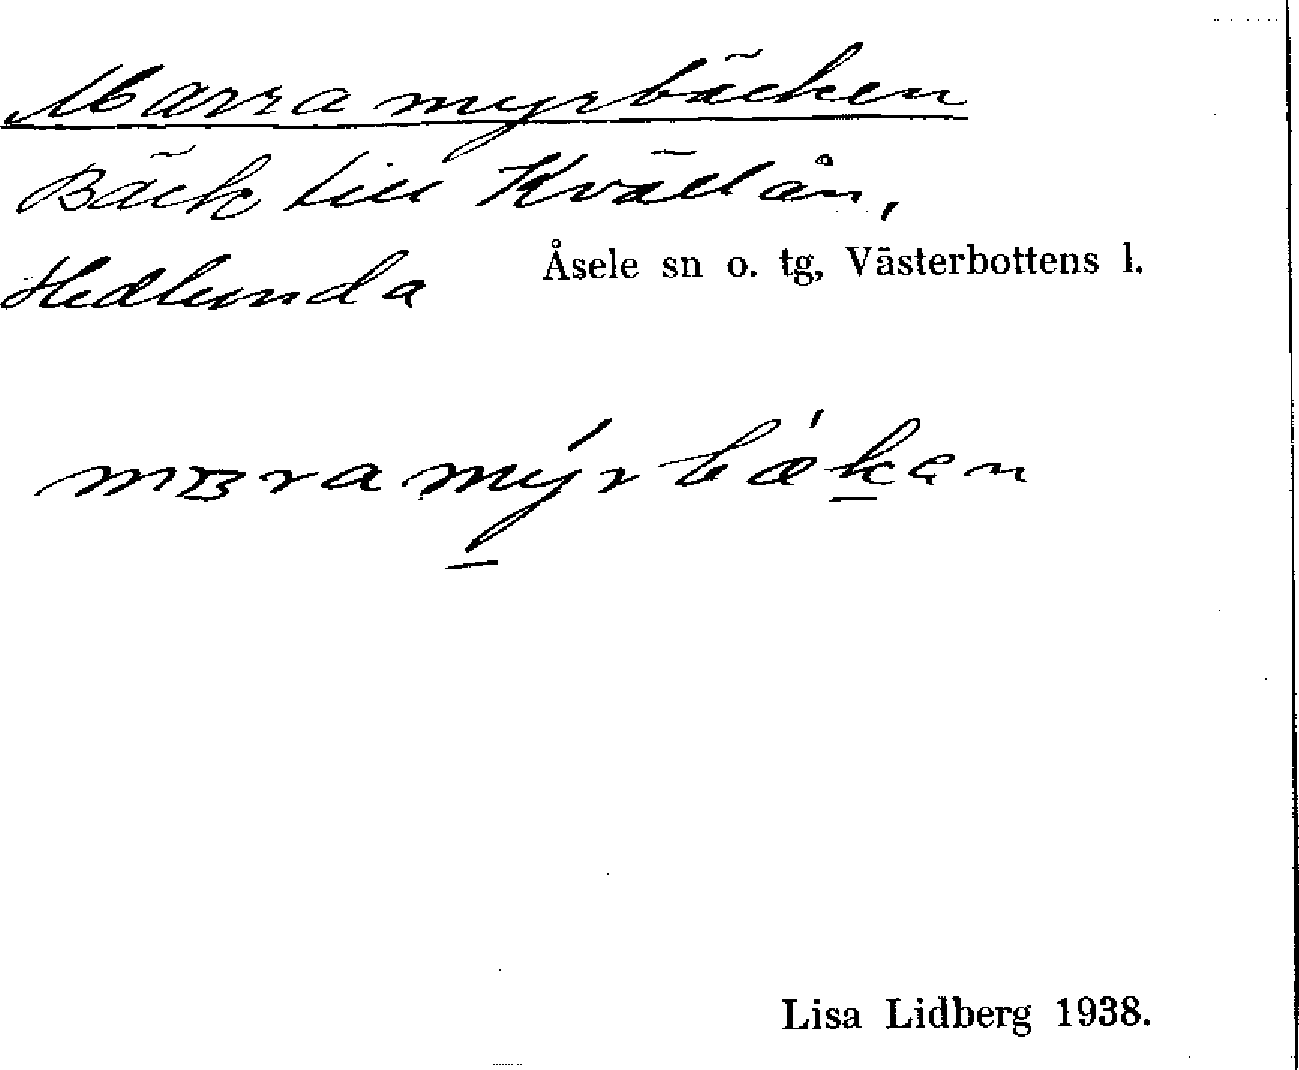 Marramyrbäcken
Bäck till Kvällån,
Hedlunda Åsele sn o. tg, Västerbottens l.
Lisa Lidberg 1938.